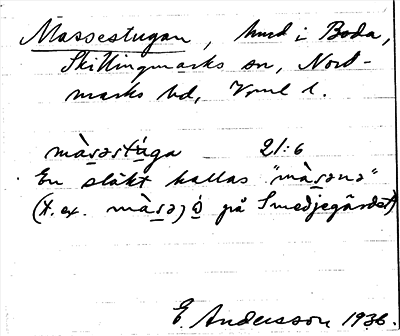 Massestugan, hmd i Boda,
Skillingmarks sn, Nord-
marks hd, Vrml l.
màsastúga 21:6
En släkt kallas "màsana"
(t.ex. på Smedjegårdet)
E. Andersson 1936.